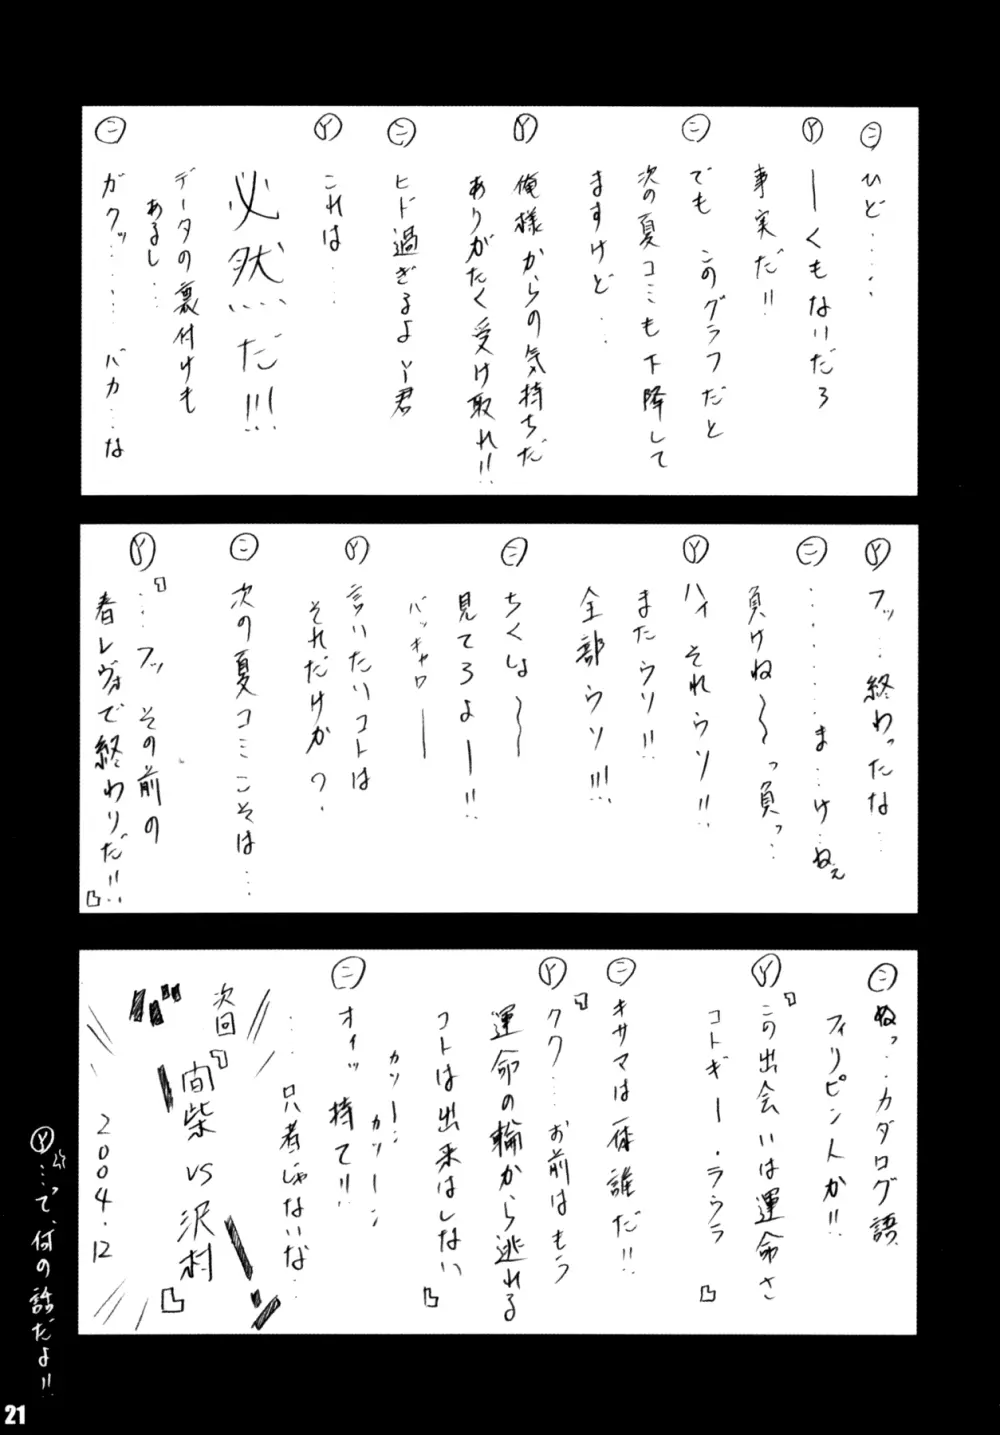 ㊁ひど……
Ⓨーくもないだろ
事実だ!!
㊁でも このグラフだと
次の夏コミも下降して
ますけど…
Ⓨ俺様からの気持ちだ
ありがたく受け取れ!!
㊁ヒド過ぎるよY君
Ⓨこれは……
必然だ!!!
データの裏付けも
あるし…
㊁ガクッ……… バカ…な
Ⓨフッ…終わったな…
㊁………ま…け…ねぇ
負けね〜〜っ負っ…
Ⓨハイ それウソ!!
またウソ!!
全部ウソ!!!
㊁ちくしょ〜〜
見てろよー!!
バッキャロー
Ⓨ言いたいコトは
それだけか?
㊁次の夏コミこそは…
Ⓨ『…フッ その前の
春レヴォで終わりだ!!』
㊁ぬっ…カタログ語
フィリピン人か!!
Ⓨ『この出会いは運命さ
コトギー・ラウラ』
㊁キサマは一体誰だ!!
Ⓨ『ククク…お前はもう
運命の輪から逃れる
コトは出来はしない』
カツーン カツーン
㊁オイッ 待て!!
… 只者じゃないな…
次回『間柴 vs 沢村』
2004.12
Ⓨ…って、何の話だよ!!
21